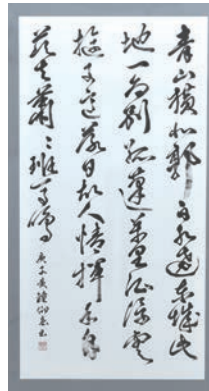 青山横北郭白水遶東城此
地一為別孤蓬萬里征浮雲
遊子意落日故人情揮手自
茲去蕭々班馬鳴